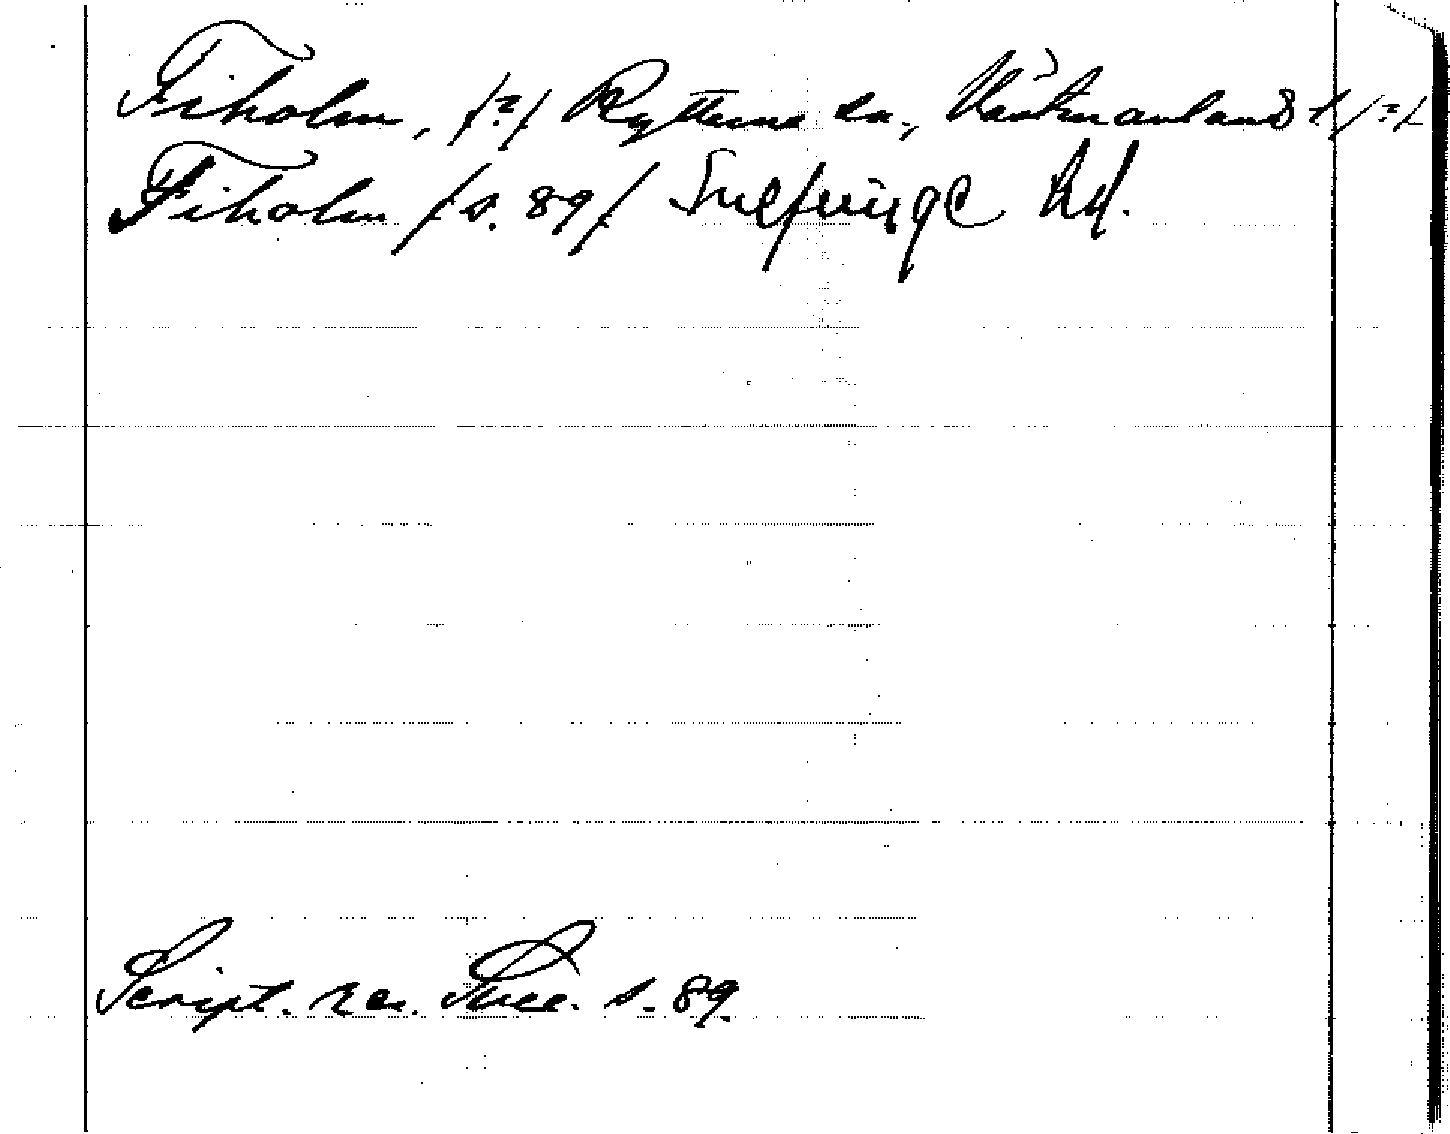 Fiholm, /?/ Rytterne sn., Västmanlands l /?/
Fiholm /s. 89/ Snefringe hd.
Script. rer. Suec. s. 89.